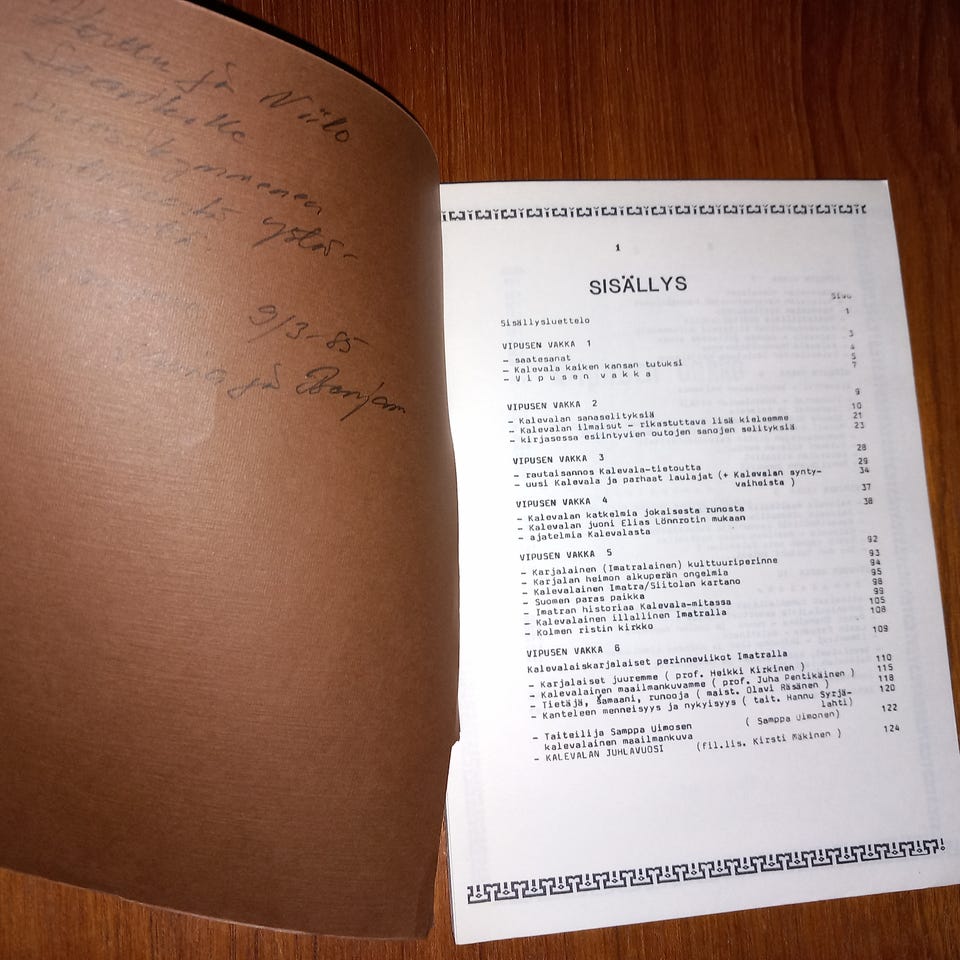 ja Niilo
ystä-
9/3-85
ja Benjam
1
SISÄLLYS
Sivu
Sisällysluettelo 1
VIPUSEN VAKKA 1 3
- saatesanat 4
- Kalevala kaiken kansan tutuksi 5
- V i p u s e n v a k k a 7
VIPUSEN VAKKA 2 9
- Kalevalan sanaselityksiä 10
- Kalevalan ilmaisut - rikastuttava lisä kieleemme 21
- kirjasessa esiintyvien outojen sanojen selityksiä 23
VIPUSEN VAKKA 3 28
- rautaisannos Kalevala-tietoutta 29
- uusi Kalevala ja parhaat laulajat (+ Kalevalan synty- 34
vaiheista )
VIPUSEN VAKKA 4 37
- Kalevalan katkelmia jokaisesta runosta 38
- Kalevalan juoni Elias Lönnrotin mukaan
- ajatelmia Kalevalasta
VIPUSEN VAKKA 5 92
- Karjalainen (Imatralainen) kulttuuriperinne 93
- Karjalan heimon alkuperän ongelmia 94
- Kalevalainen Imatra/Siitolan kartano 95
- Suomen paras paikka 98
- Imatran historiaa Kalevala-mitassa 99
- Kalevalainen illallinen Imatralla 105
- Kolmen ristin kirkko 108
VIPUSEN VAKKA 6 109
Kalevalaiskarjalaiset perinneviikot Imatralla
- Karjalaiset juuremme ( prof. Heikki Kirkinen ) 110
- Kalevalainen maailmankuvamme ( prof. Juha Pentikäinen ) 115
- Tietäjä, šamaani, runooja ( maist. Olavi Räsänen ) 118
- Kanteleen menneisyys ja nykyisyys ( tait. Hannu Syrjä- 120
lahti)
- Taiteilija Samppa Uimosen ( Samppa Uimonen) 122
kalevalainen maailmankuva
- KALEVALAN JUHLAVUOSI (fil.lis. Kirsti Mäkinen ) 124